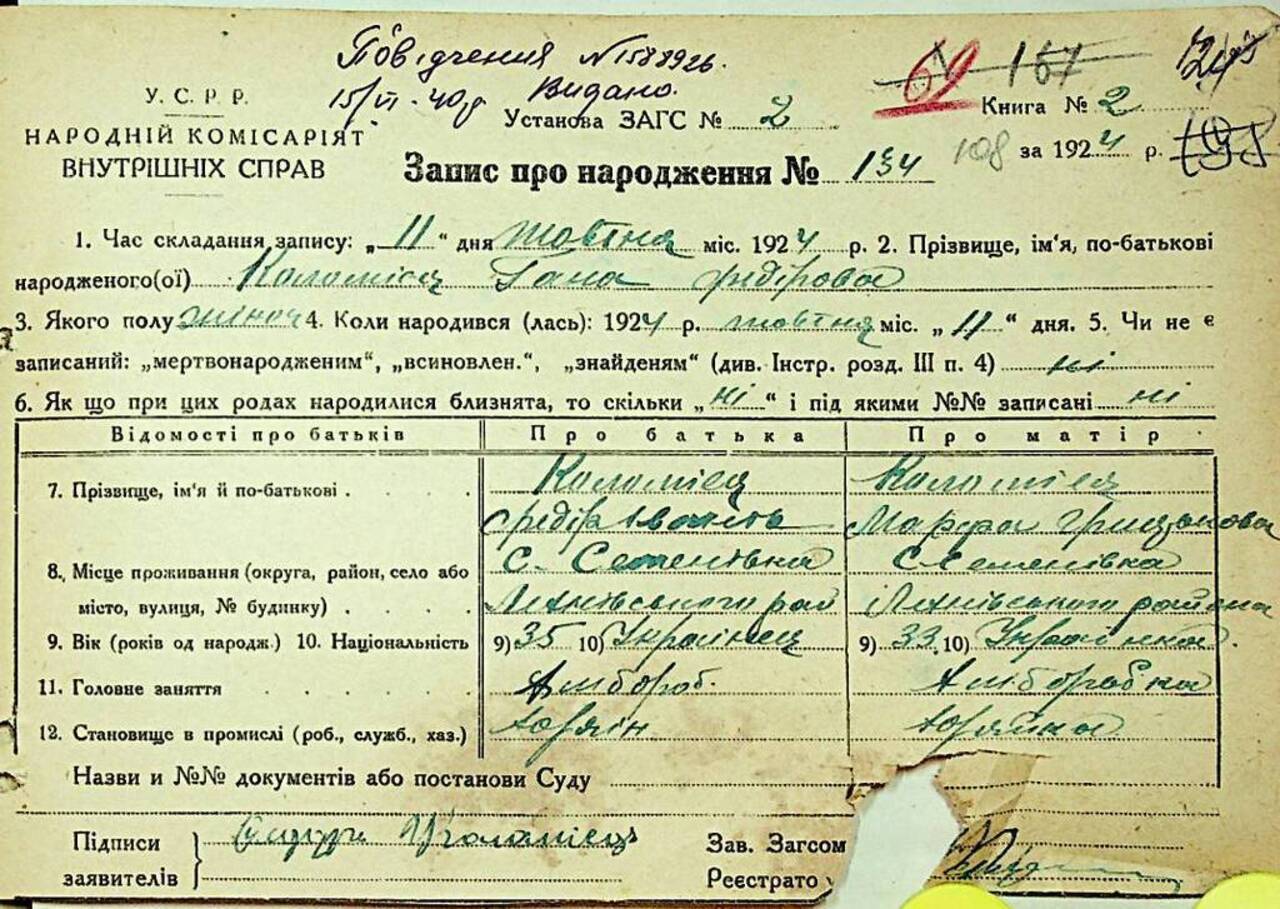 Посвідчення №1588926.
15/VI-40р Видано.
У. С. Р. Р.
НАРОДНІЙ КОМІСАРІЯТ
ВНУТРІШНІХ СПРАВ
Установа ЗАГС № 2
69 167
Книга № 2
108 за 1924 р.
Запис про народження № 134
1. Час складання запису: „ 11 “ дня жовтня міс. 1924 р. 2. Прізвище, ім'я, по-батькові
народженого(ої) Коломієць Гана Федірова
3. Якого полу жіноч 4. Коли народився (лась): 1924 р. жовтня міс. „ 11 “ дня. 5. Чи не є
записаний: „мертвонародженим“, „всиновлен.“, „знайденям“ (див. Інстр. розд. III п. 4) ні
6. Як що при цих родах народилися близнята, то скільки „ ні “ і під якими №№ записані ні
Відомості про батьків Про батька Про матір
7. Прізвище, ім'я й по-батькові . . . . Коломієць Коломієць
Федір Іванів Марфа Грицькова
8. Місце проживання (округа, район, село або с. Семенівка с Семенівка
місто, вулиця, № будинку) . . . .
9. Вік (років од народж.) 10. Національність 9) 35 10) Українец 9) 33 10) Українка.
11. Головне заняття . . . . . Хлібороб. Хліборобка
12. Становище в промислі (роб., служб., хаз.) хозяін хозяйка
Назви и №№ документів або постанови Суду
Підписи
заявителів
Коломієць
Зав. Загсом
Реєстрато